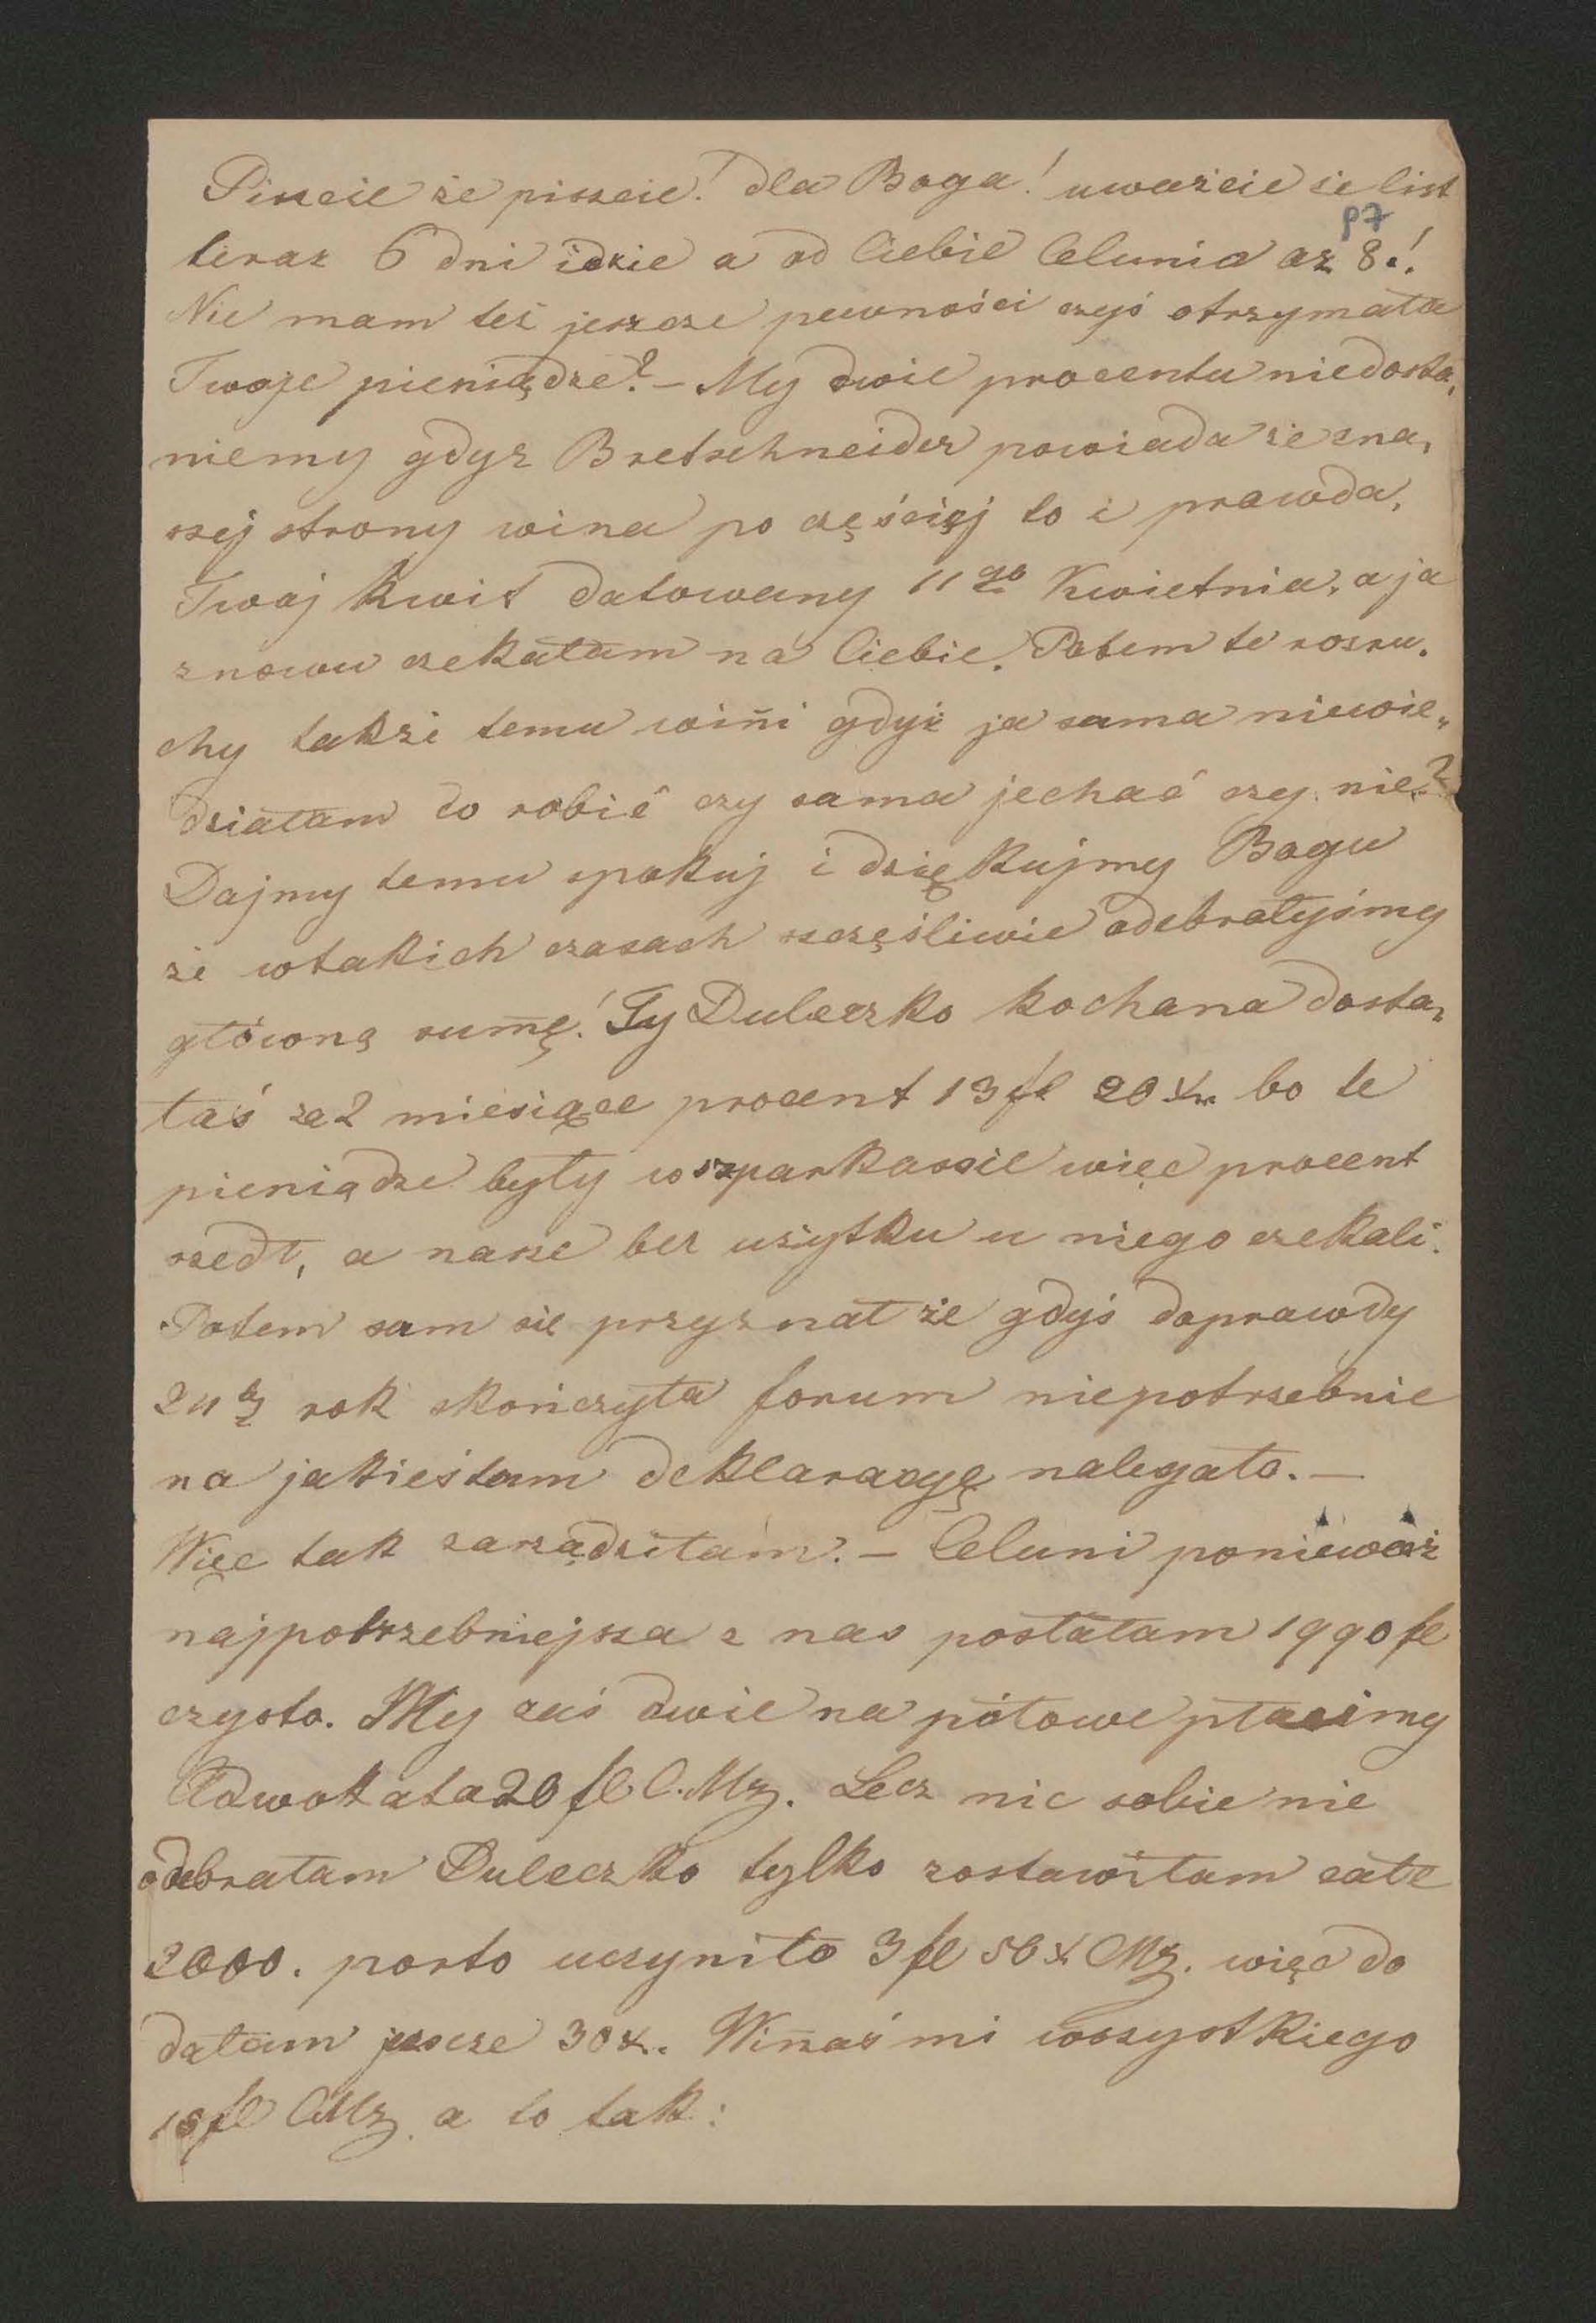 Piszcie że piszcie! dla Boga! uważcie że list
p7
teraz 6 dni idzie a od Ciebie Celunia az 8.!
Nie mam też jeszcze pewności czyś otrzymała
Twoje pieniądze? – My dwie procentu niedosta,
niemy gdyz Bretschneider powiada że zna,
szej strony wina po częścięj to i prawda,
Twój kwit datowany 11go Kwietnia, a ja
znowu czekałam na Ciebie. Potem te rozru,
chy także temu wińi gdyż ja sama niewie,
działam co robić czy sama jechać czy nie?
Dajmy temu spokuj i dziękujmy Bogu
że wtakich czasach szczęśliwie odebrałyśmy
główną sumę! Ty Duleczko kochana dosta,
łaś za 2 miesiące procent 13 fl 20 xr bo te
pieniądze były wszparkassie więc procent
szedł, a nasze bez użytku u niego czekali.
Potem sam się przyznał że gdyś doprawdy
24ty rok skończyła forum niepotrzebnie
na jakieśtam deklaracyę nalegało. –
Więc tak zarządziłam: – Celuni ponieważ
najpotrzebniejsza z nas posłałam 1990 fl
czysto. My zaś dwie na połowe płacimy
Adwokata 20 fl C.Mz. Lecz nic sobie nie
odebrałam Duleczko tylko zostawiłam całe
2000. porto uczyniło 3 fl 56 x CMz. więc do
dałam jeszcze 30 x. Winaś mi wszystkiego
18 fl CMz a to tak: